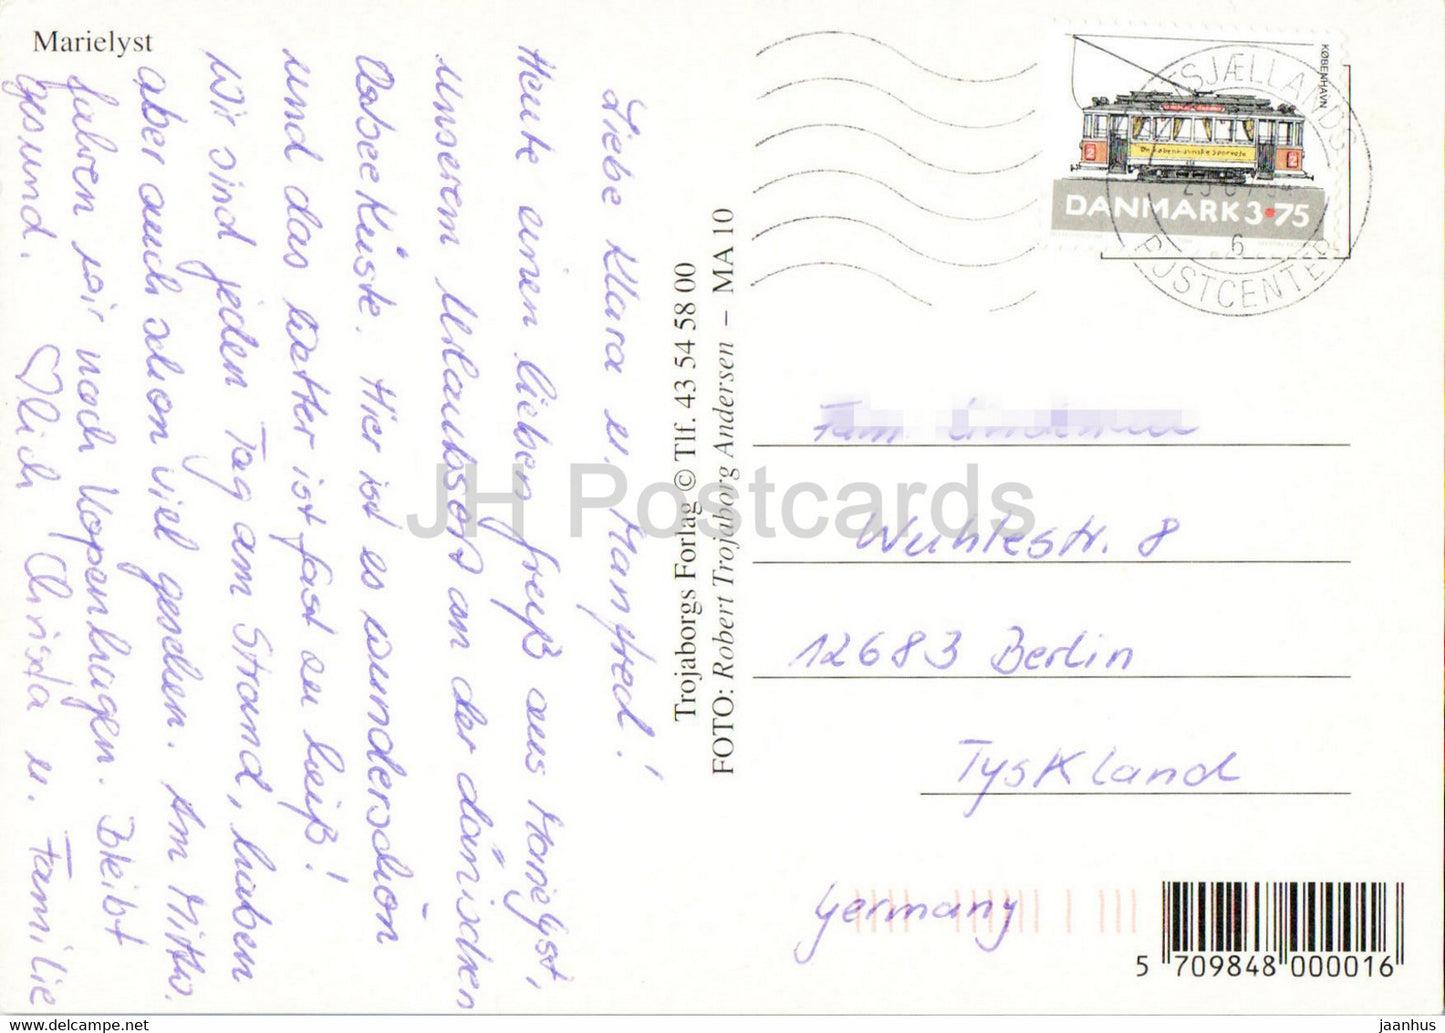 Marielyst
Liebe Klara u. Manfred!
Heute einen lieben Gruß aus Marielyst,
unserem Urlaubsort an der dänischen
Ostseeküste. Hier ist es wunderschön
und das Wetter ist fast zu heiß!
Wir sind jeden Tag am Strand, haben
aber auch schon viel gesehen. Am Mittw.
fahren wir noch Kopenhagen. Bleibt
gesund. ♡lich Christa u. Familie
Trojaborgs Forlag © Tlf. 43 54 58 00
FOTO: Robert Trojaborg Andersen – MA 10
KØBENHAVN
2
De Københavnske Sporveje
2
DANMARK 3•75
SJÆLLANDS
6
POSTCENTER
Fam.
Wuhlestr. 8
12683 Berlin
Tyskland
Germany
5 709848 000016
JH Postcards
delcampe.net
jaanhus